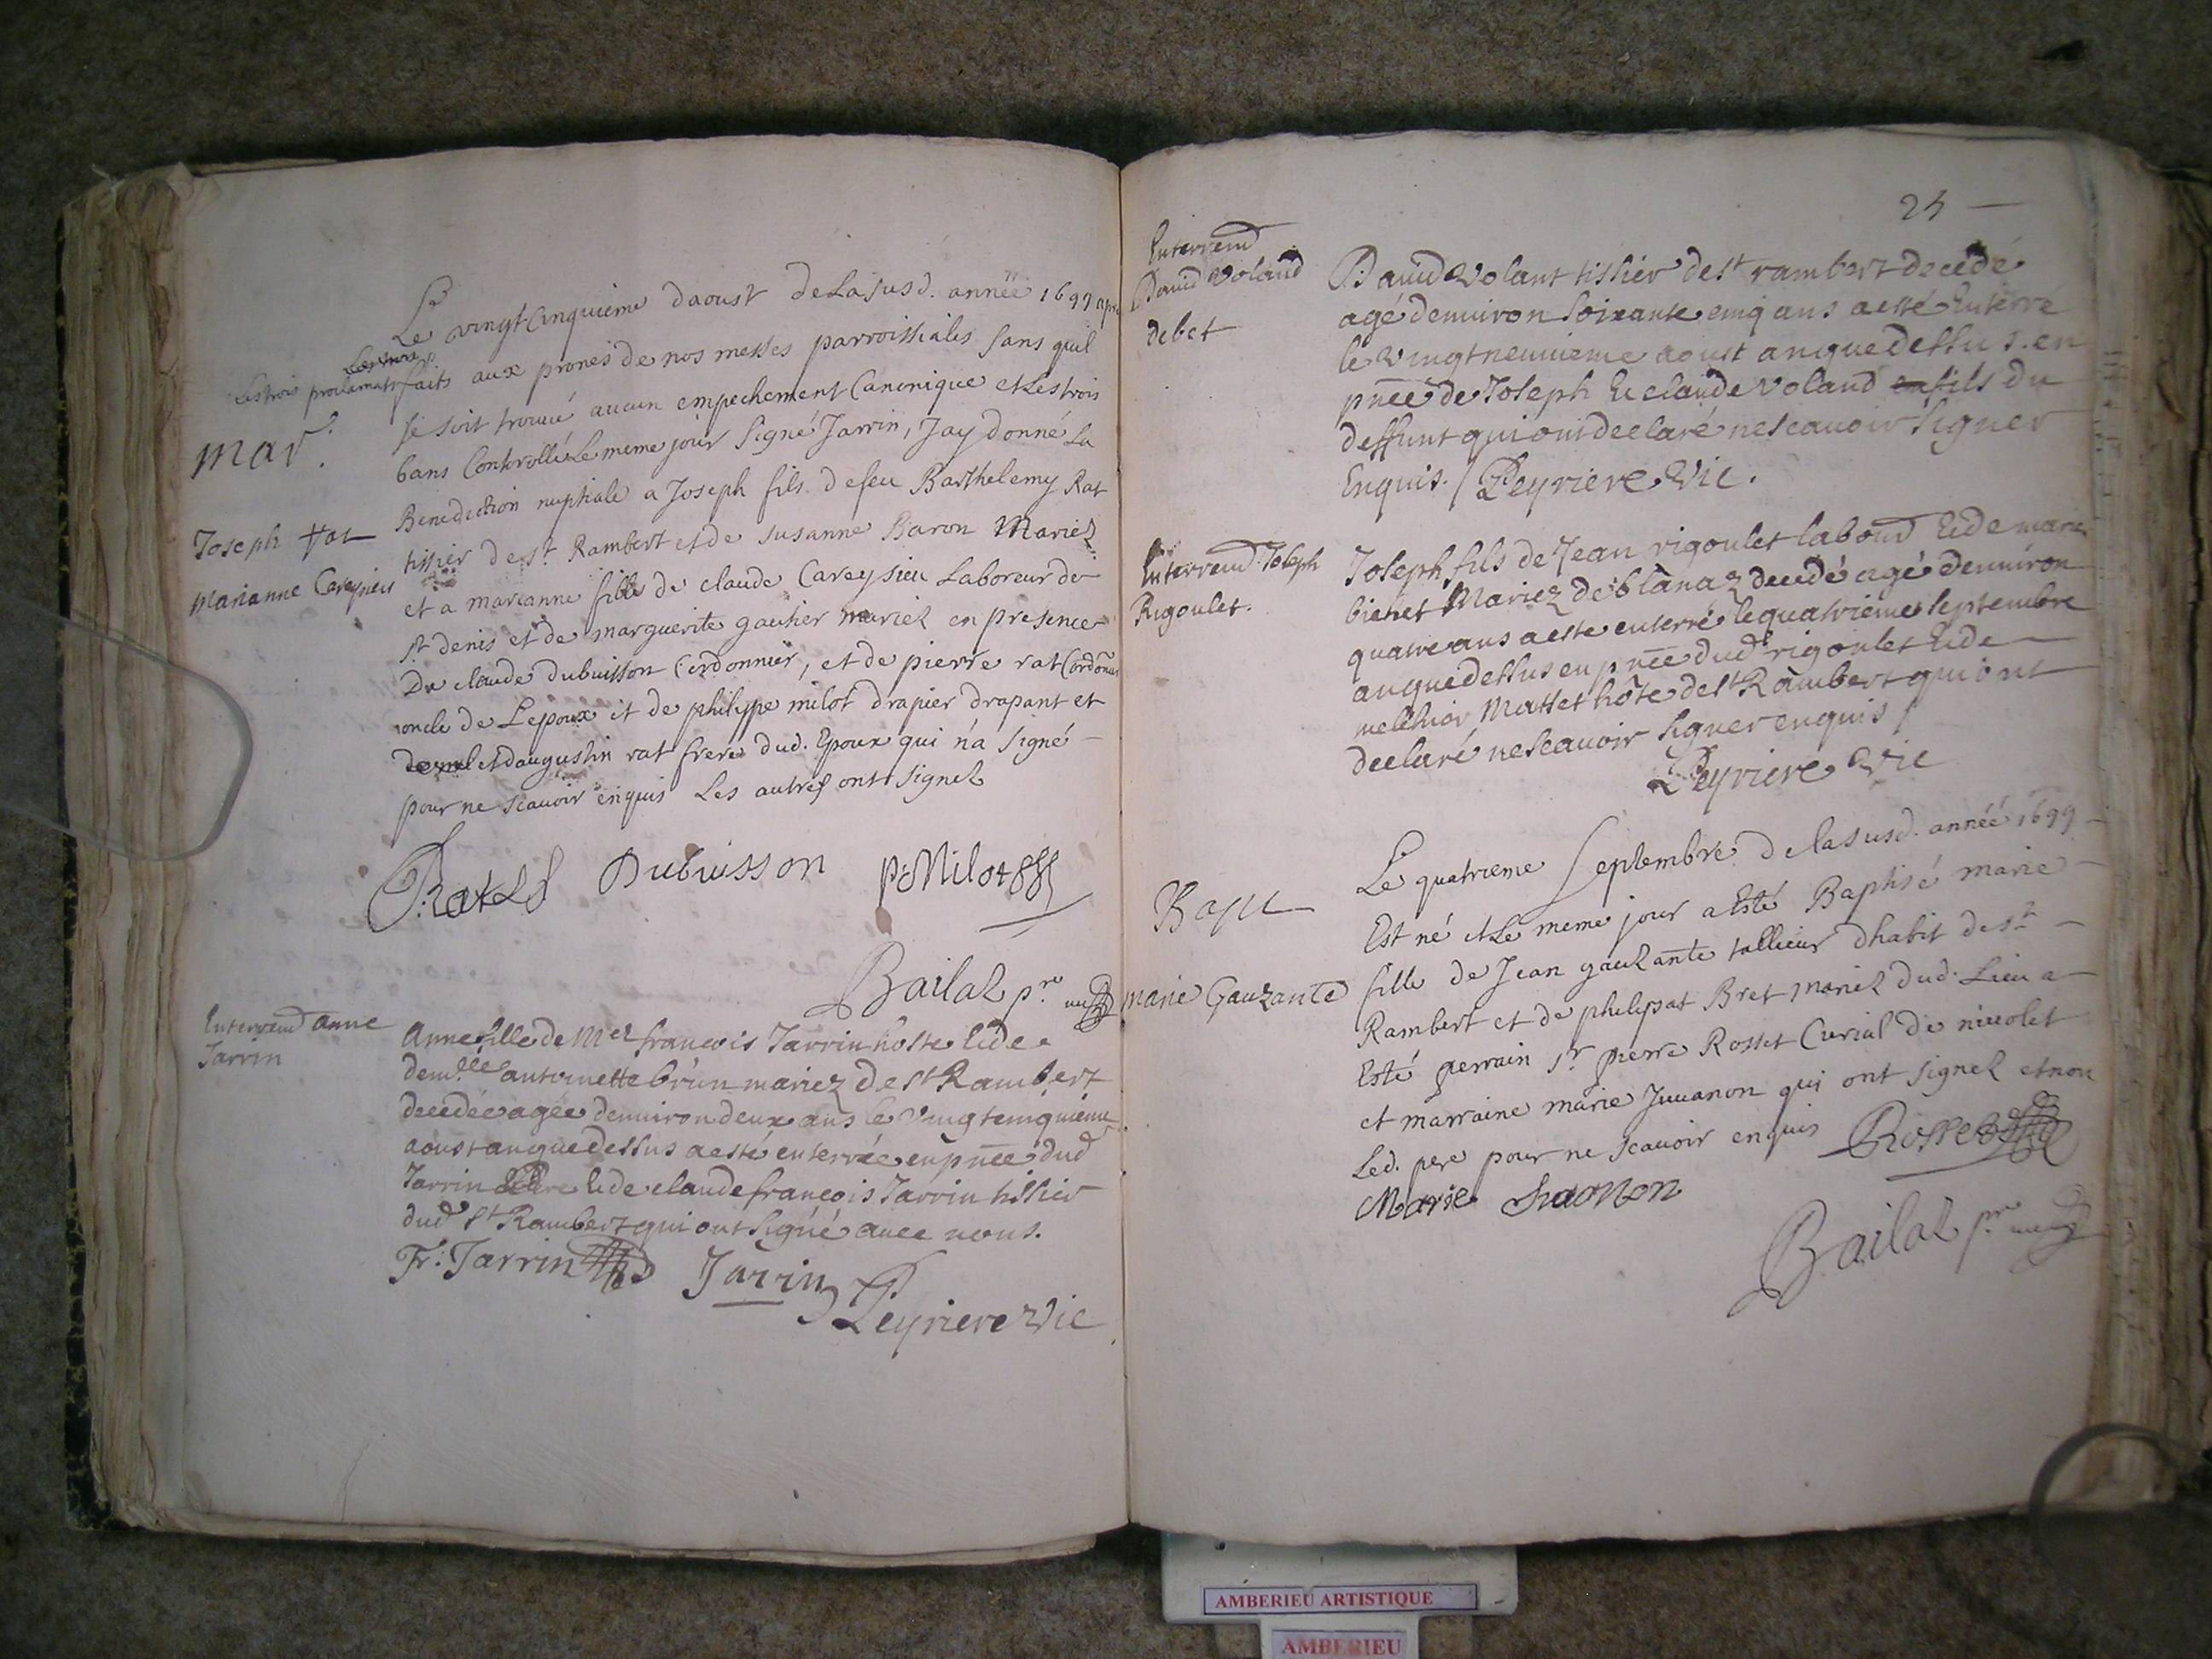 Le vingt Cinquieme daoust De La susd. année 1699 apres
Les trois proclamat. faits aux prones de nos messes parroissiales sans quil
mar.
se soit trouvé aucun empechement Canonique et Les trois
bans Controllé Le meme jour Signé Jarrin, Jay donné La
Benediction nuptiale a Joseph fils de feu Barthelemy Rat
Joseph rat
tissier de st. Rambert et de susanne Baron Mariez
marianne Careysieu
et a marianne fille de claude Careysieu Laboreur de
st denis et de marguerite gautier mariez en presence
De claude dubuisson Cordonnier, et de pierre rat Cordonnier
oncle de Lepoux et de philippe milot drapier drapant et
et daugustin rat frere dud. Epoux qui n'a signé
pour ne scavoir enquis Les autres ont signez
Rat Dubuisson p: Milot
Bailat pre
Enterremt anne
Jarrin
Anne fille de Me francois Jarrin hoste et de
demlle antoinette brun mariez de st Rambert
decedée agée denviron deux ans le vingtcinquieme
aoust anque dessus a esté enterrée en pnce dud
Jarrin et de claude francois Jarrin tissier
dud st Rambert qui ont signé avec nous.
Fr: Jarrin Jarrin
Peyriere Vic
24
Enterremt
David Voland
debet
David Volant tissier de st rambert decedé
agé denviron soixante cinq ans a esté Enterré
le Vingtneuvieme aoust an que dessus. en
pnce de Joseph et claude Voland fils du
deffunt qui ont declaré ne scavoir signer
Enquis. / Peyriere Vic.
Enterremt Joseph
Rigoulet.
Joseph fils de Jean rigoulet labour et de marie
bichet Mariez de blanaz decedé agé denviron
quatre ans a este enterré le quatrieme septembre
an que dessus en pnce dud rigoulet et de
melchior Masset hôte de st Rambert qui ont
declaré ne scavoir signer enquis /
Peyriere Vic
Le quatrieme Septembre de la susd. année 1699
Bapt
Est né et Le meme jour a Esté Baptisé marie
marie Gauzante
fille de Jean gauzante tallieur dhabit de st
Rambert et de philipat Bret mariez dud. Lieu a
Esté perrain sr. pierre Rosset Curial de nivolet
et marraine marie Juvanon qui ont signez et non
Led. pere pour ne scavoir enquis Rosset
Marie Juvonon
Bailat pre
AMBERIEU ARTISTIQUE
AMBERIEU